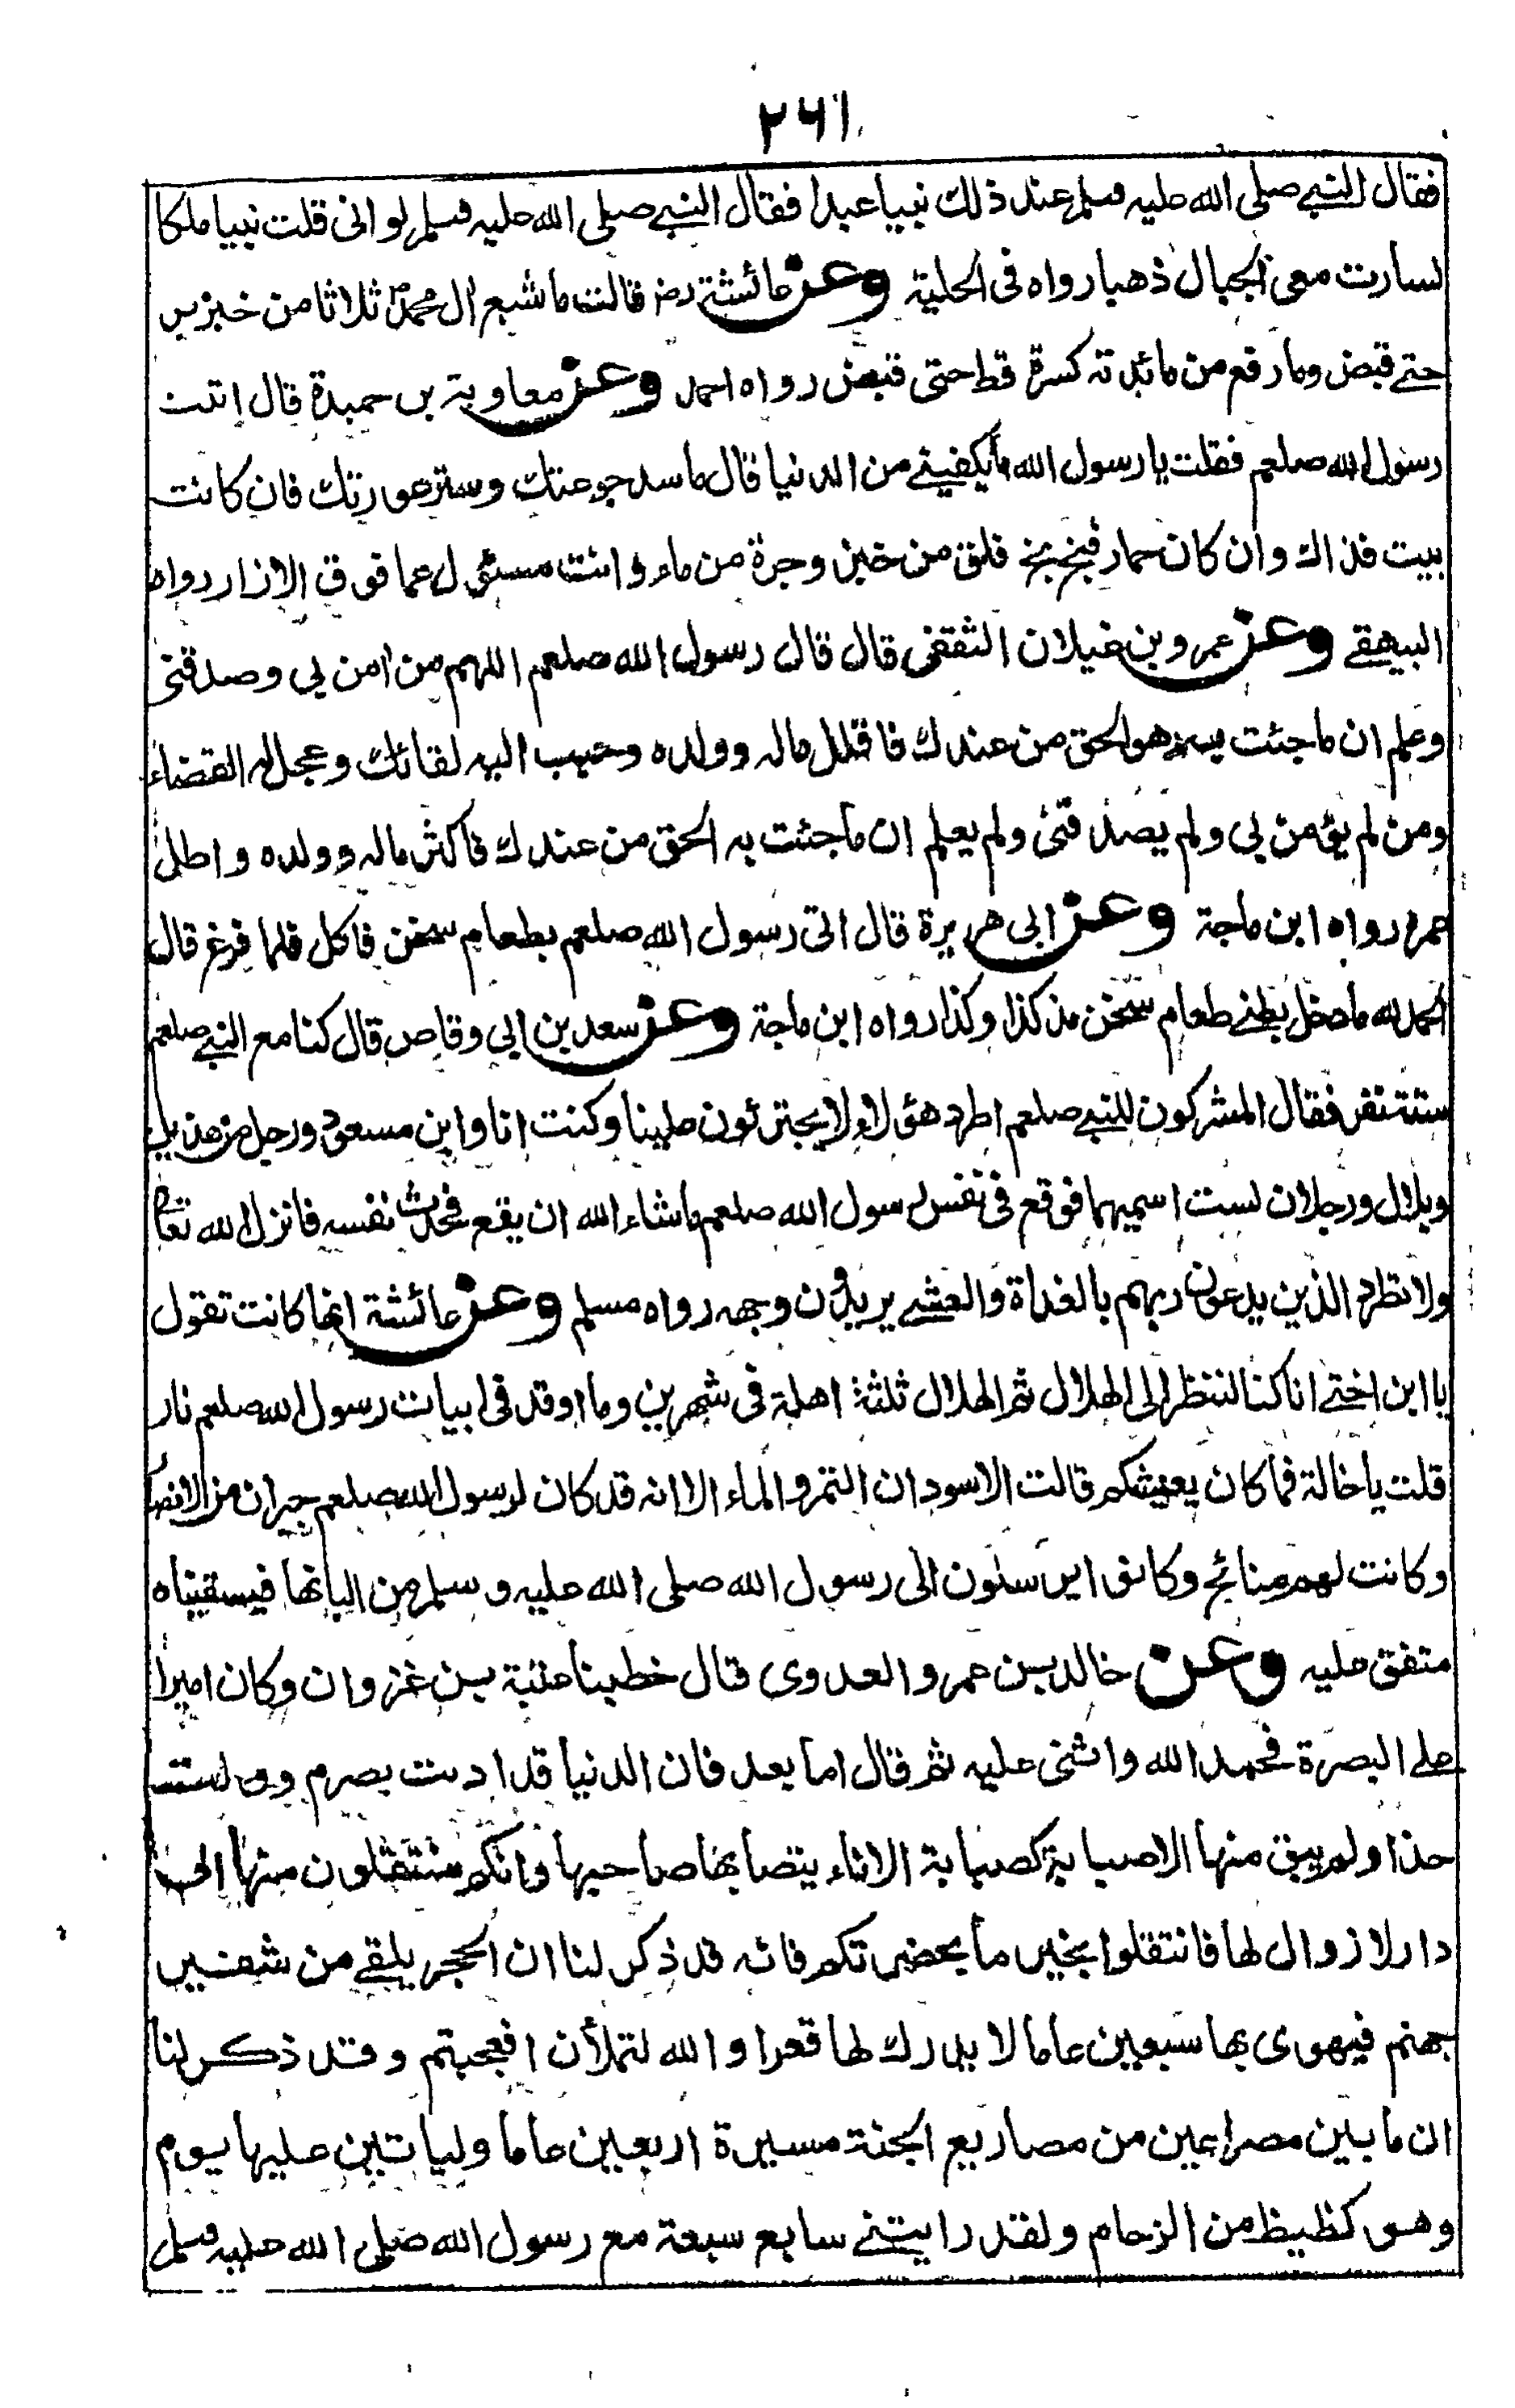 ٢٦١
فقال النبي صلى الله عليه وسلم عند ذلك نبيا عبدا فقال النبي صلى الله عليه وسلم لو اني قلت نبيا ملكا
لسارت معي الجبال ذهبا رواه في الحلية وعن عائشة رض قالت ما شبع ال محمد ثلاثا من خبز بر
حتے قبض وما رفع من مائدته كسرة قط حتى قبض رواه احمد وعن معاوية بن حيدة قال اتيت
رسول الله صلعم فقلت يا رسول الله ما يكفيني من الدنيا قال ما سد جوعتك وستر عورتك فان كانت
بيت فذاك وان كان حمار فبخ بخ فلق من خبز وجرة من ماء وانت مسئول عما فوق الازار رواه
البيهقے وعن عمرو بن غيلان الثقفي قال قال رسول الله صلعم اللهم من امن بي وصدقني
وعلم ان ما جئت به هو الحق من عندك فاقلل ماله وولده وحبب اليه لقائك وعجل له القضاء
ومن لم يؤمن بي ولم يصدقني ولم يعلم ان ما جئت به الحق من عندك فاكثر ماله وولده واطل
عمره رواه ابن ماجة وعن ابي هريرة قال اتي رسول الله صلعم بطعام سخن فاكل فلما فرغ قال
الحمد لله ما دخل بطني طعام سخن مذ كذا وكذا رواه ابن ماجة وعن سعد بن ابي وقاص قال كنا مع النبي صلعم
ستة نفر فقال المشركون للنبي صلعم اطرد هؤلاء لا يجترئون علينا وكنت انا وابن مسعود ورجل من هذيل
وبلال ورجلان لست اسميهما فوقع في نفس رسول الله صلعم ما شاء الله ان يقع فحدث نفسه فانزل الله تعا
ولا تطرد الذين يدعون ربهم بالغداة والعشي يريدون وجهه رواه مسلم وعن عائشة انها كانت تقول
يا ابن اختے انا كنا لننظر الى الهلال ثم الهلال ثلثة اهلة في شهرين وما اوقد في ابيات رسول الله صلعم نار
قلت يا خالة فما كان يعيشكم قالت الاسودان التمر والماء الا انه قد كان لرسول الله صلعم جيران من الانصا
وكانت لهم منائح وكانوا يرسلون الى رسول الله صلى الله عليه وسلم من البانها فيسقيناه
متفق عليه وعن خالد بن عمرو العدوي قال خطبنا عتبة بن غزوان وكان اميرا
علے البصرة فحمد الله واثنى عليه ثم قال اما بعد فان الدنيا قد اذنت بصرم وولت
حذا ولم يبق منها الا صبابة كصبابة الاناء يتصابها صاحبها وانكم منتقلون منها الى
دار لا زوال لها فانتقلوا بخير ما بحضرتكم فانه قد ذكر لنا ان الحجر يلقے من شفير
جهنم فيهوى بها سبعين عاما لا يدرك لها قعرا والله لتملأن افعجبتم وقد ذكر لنا
ان ما بين مصراعين من مصاريع الجنة مسيرة اربعين عاما وليأتين عليها يوم
وهو كظيظ من الزحام ولقد رايتني سابع سبعة مع رسول الله صلى الله عليه وسلم